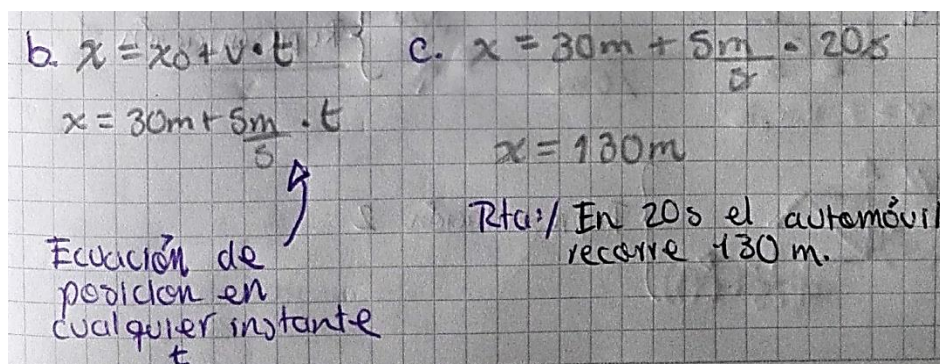 b. x = xo + v • t
x = 30m + 5m/s . t
Ecuación de
posición en
cualquier instante
t
c. x = 30m + 5m/s • 20s
x = 130m
Rta:/ En 20s el automóvil
recorre 130 m.